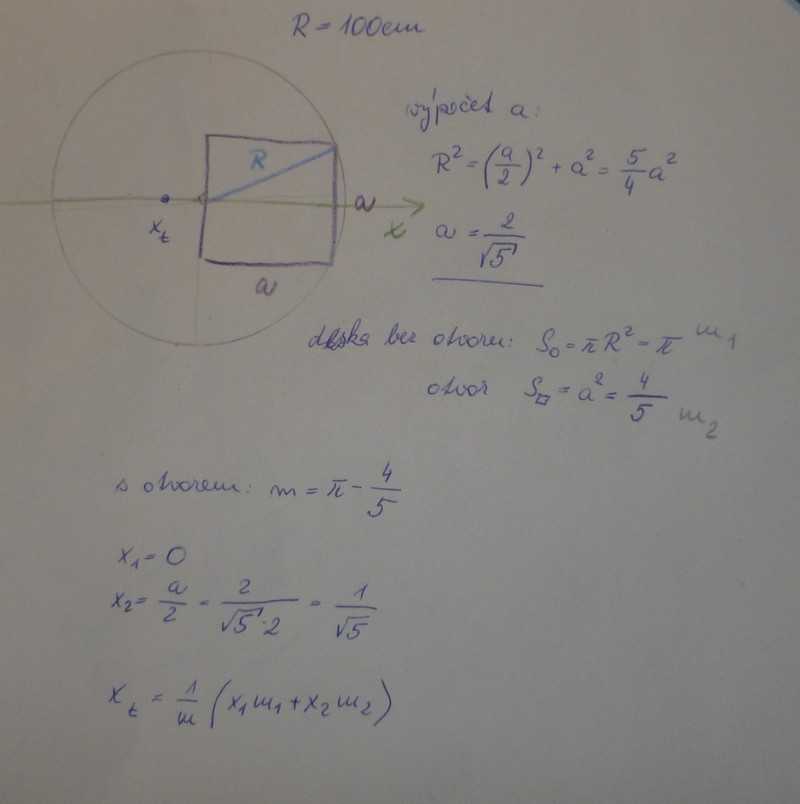 R = 100cm
výpočet a:
R² = (a/2)² + a² = 5/4 a²
a = 2/√5
R
a
x
x_t
a
deska bez otvoru: S₀ = πR² = π m₁
otvor S□ = a² = 4/5 m₂
s otvorem: m = π - 4/5
x₁ = 0
x₂ = a/2 = 2/√5·2 = 1/√5
x_t = 1/m (x₁m₁ + x₂m₂)